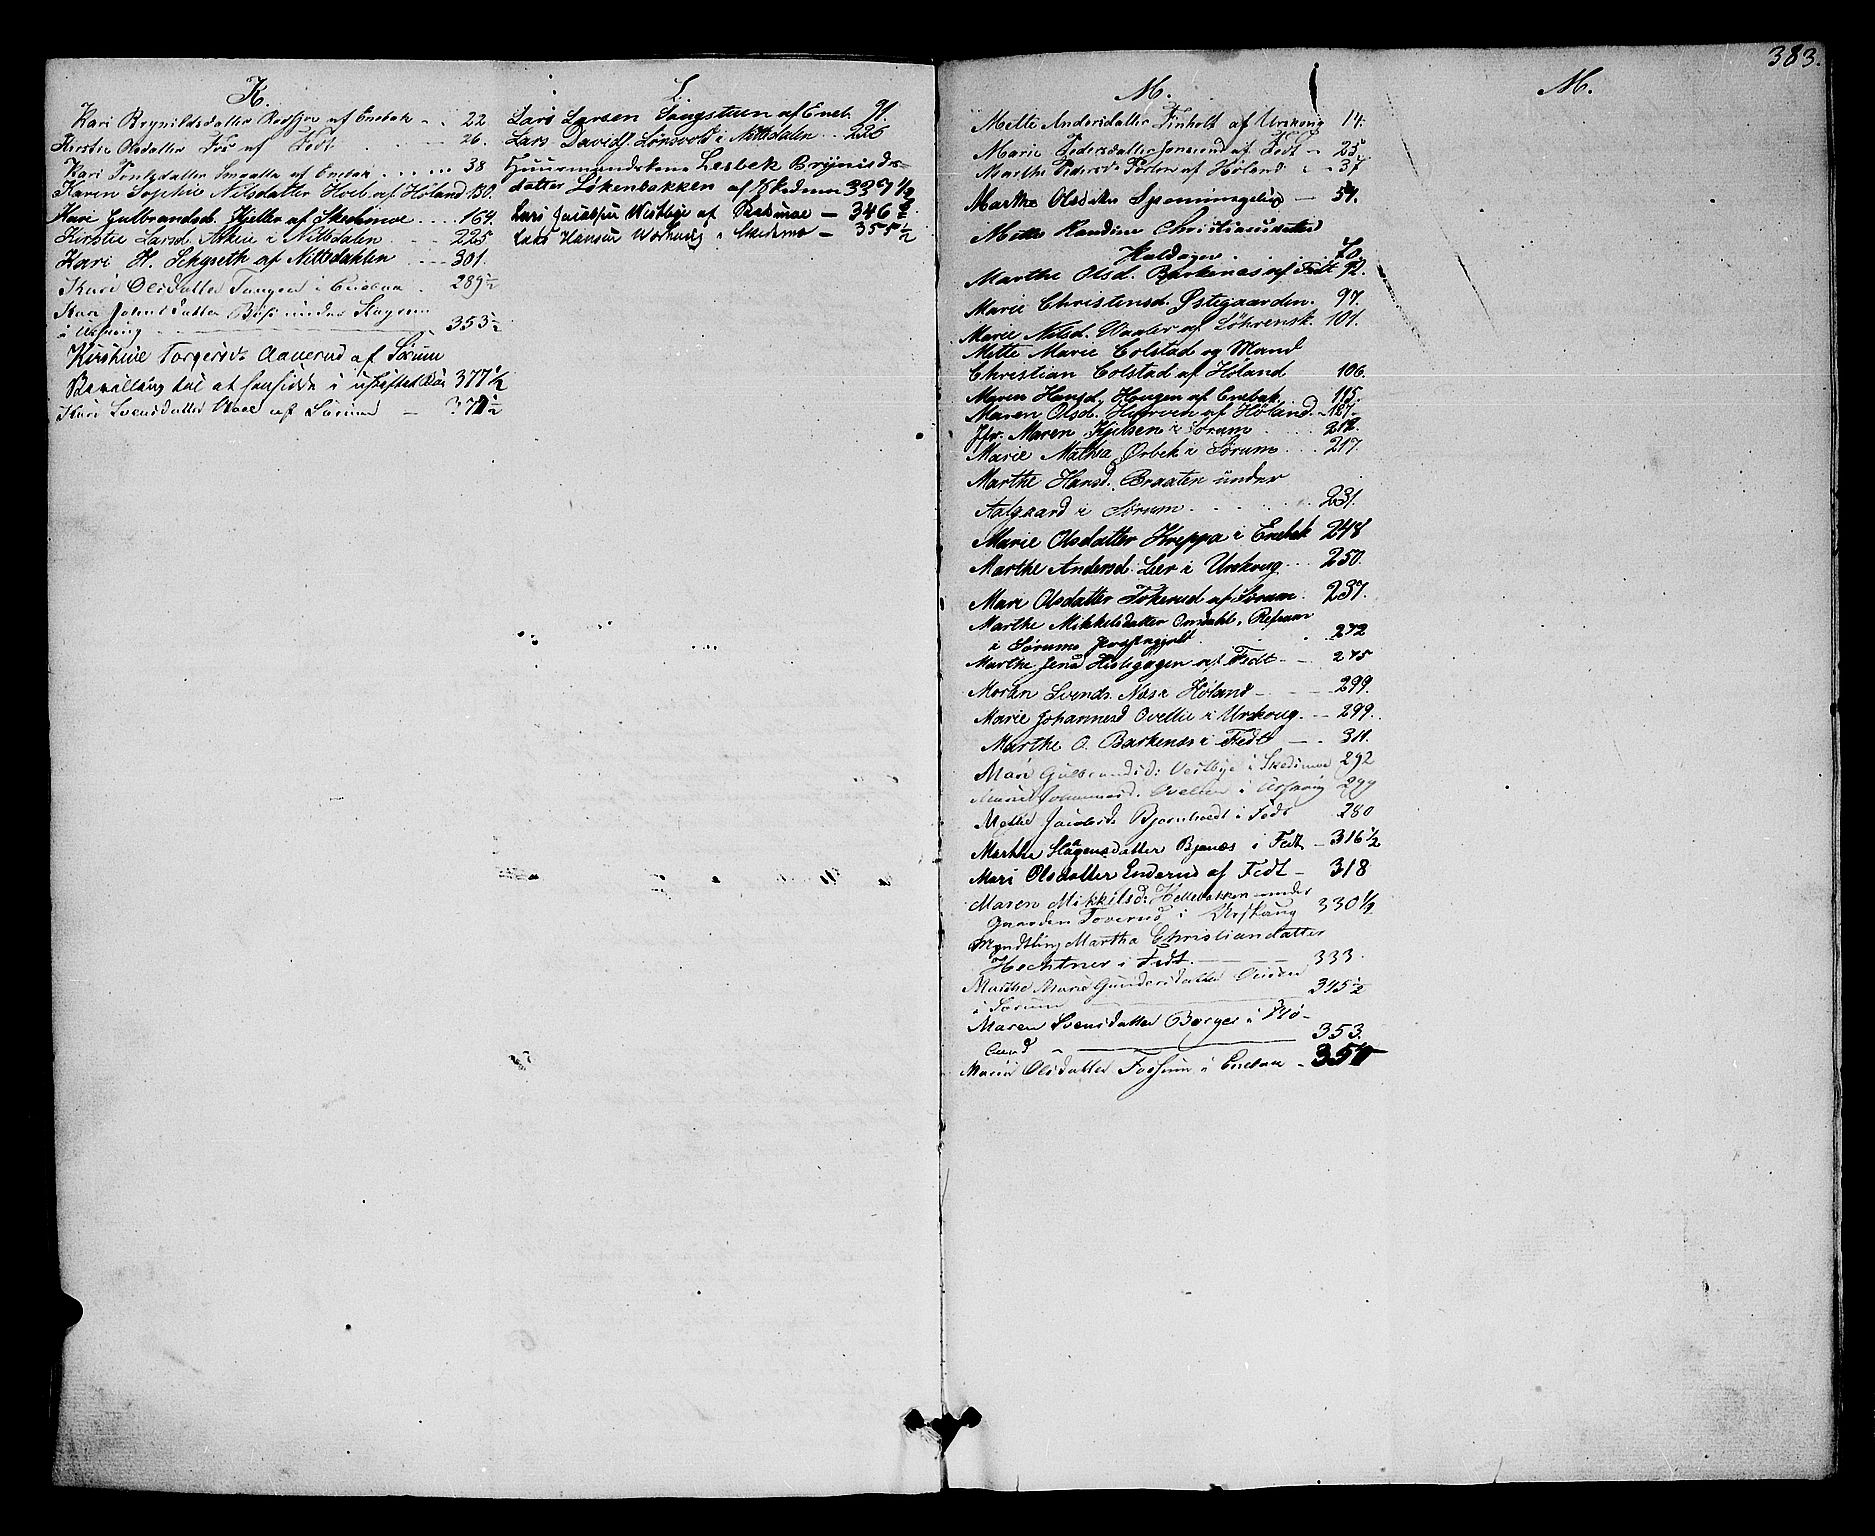 383.
K.
Kari Brynildsdatter af Enebak . . 22
Kirstie Olsdatter Fos af Fedt . . . 26.
Kari af Enebak . . . . . . 38
Karen Sophie Nilsdatter Hveb af Höland 130.
Kari Gulbrandsd. Kjeller af Skedsmoe . . . . 164.
Kirstie Larsd. i Nittedalen . . . 225
Kari H. af Nittedahlen . . . . 301.
Kari Olsdatter Tangen i Enebak . 289½
Kari Johnsdatter under
i Urskoug 353½
Kirstine Torgersd. Aanerud af Sörum
Bevilling til at hensidde i uskiftet Bo 377½
Kari Svensdatter af Sörum — 371½
L.
Lars Larsen Tangsteen af Eneb. 91.
Lars Davids. Lönsvold i Nittedalen . . 226
Huusmandskone Lesbek Brynilds-
datter Løkenbakken af Skedsmoe 337½
Lars Jacobsen Westbye af Skedsmoe — 346½
Lars Hansen i Skedsmo — 355½
M.
Mette Andersdatter Finholt af Urskoug 14.
Marie Pedersdatter Jonsrud af Fedt - 25.
Marthe Pedersd. af Höland - - 37.
Marthe Olsdatter Spenningsbye — 51.
Mette Randine Christiansdatter
Haldager . . . 70.
Marthe Olsd. Barkenæs af Fedt 92.
Marie Christensd. Østegaarden. 97.
Marie Nilsd. Vaaler af Löhrensk. 101.
Mette Marie Colstad og Mand
Christian Colstad af Höland 106.
Maren Hansd. Haugen af Enebak. . . 115.
Maren Olsd. af Höland. . 187.
Jfr. Maren Kjelsen i Sörum . . . . 212.
Marie Mathea Orbek i Sörum . . . 217.
Marthe Hansd. Braaten under
Aalgaard i Sörum . . . . . . 231.
Marie Olsdatter Kreppa i Enebak 248
Marthe Andersd. Lier i Urskoug . . . 250.
Mari Olsdatter Tokerud af Sörum . 237.
Marthe Mikkelsdatter Omdahl, Refsum
i Sörums Præstegjeld . . . 272
Marthe Jensd. Hidegagen af Fedt - - 275
Morten Svends. Næs i Höland - - - 299.
Marie Johannesd Ovellie i Urskoug. - - 299.
Marthe O. Barkenæs i Fedt — . 311.
Mari Gulbrandsd: Vestbye i Skedsmoe 292
Marie Johannesd. Ovellien i Urskoug 299
Mette Jacobsd. Bjørnholdt i Fedt 280
Marthe Haagensdatter Bjanæs i Fedt - 316½
Mari Olsdatter Enderud af Fedt - 318
Maren Mikkelsd: Hellebakken under
Gaarden Toverud i Urskaug 330½
Myndtling Martha Christiandatter
Hechtner i Fedt. — — — 333.
Marthe Marie Gundersdatter
i Sörum 345½
Maren Svensdatter Borger i Hø-
land 353.
Marie Olsdatter Fossum i Enebak - 357
M.